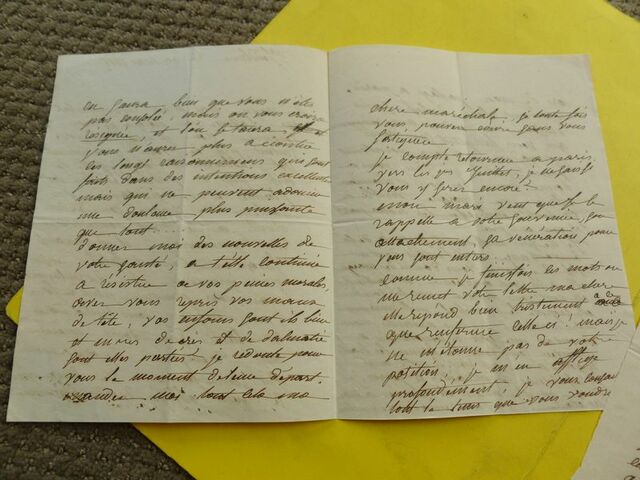 on saura bien que vous n'êtes
pas consolée, mais on vous croira
résignée, et l'on se taira et
vous n'aurez plus a écouter
les longs raisonnemens qui sont
faits dans des intentions excellentes
mais qui ne peuvent adoucir
une douleur plus puissante
que tout.
donner moi des nouvelles de
votre santé, a t'elle continuée
a résister a vos peines morales,
avez vous repris vos maux
de tête, vos enfans sont ils bien
et de dalmatie
sont elles parties. je redoute pour
vous le moment de leur départ.
mandez moi tout cela ma
chère maréchale, je toute fois
vous pouvez écrire sans vous
fatiguer.
je compte retourner a paris
vers les juillet, je ne sais
vous y serez encore?
mon mari veut que je le
rappelle a votre souvenir, son
attachement, sa vénération pour
vous sont entiers.
comme je finissois ces mots on
me remet votre lettre ma chère
me répond bien tristement a ce
que renferme celle ci! mais je
ne m'étonne pas de votre
position, je m'en afflige
profondément, je vous
tout le tems que vous voudrez